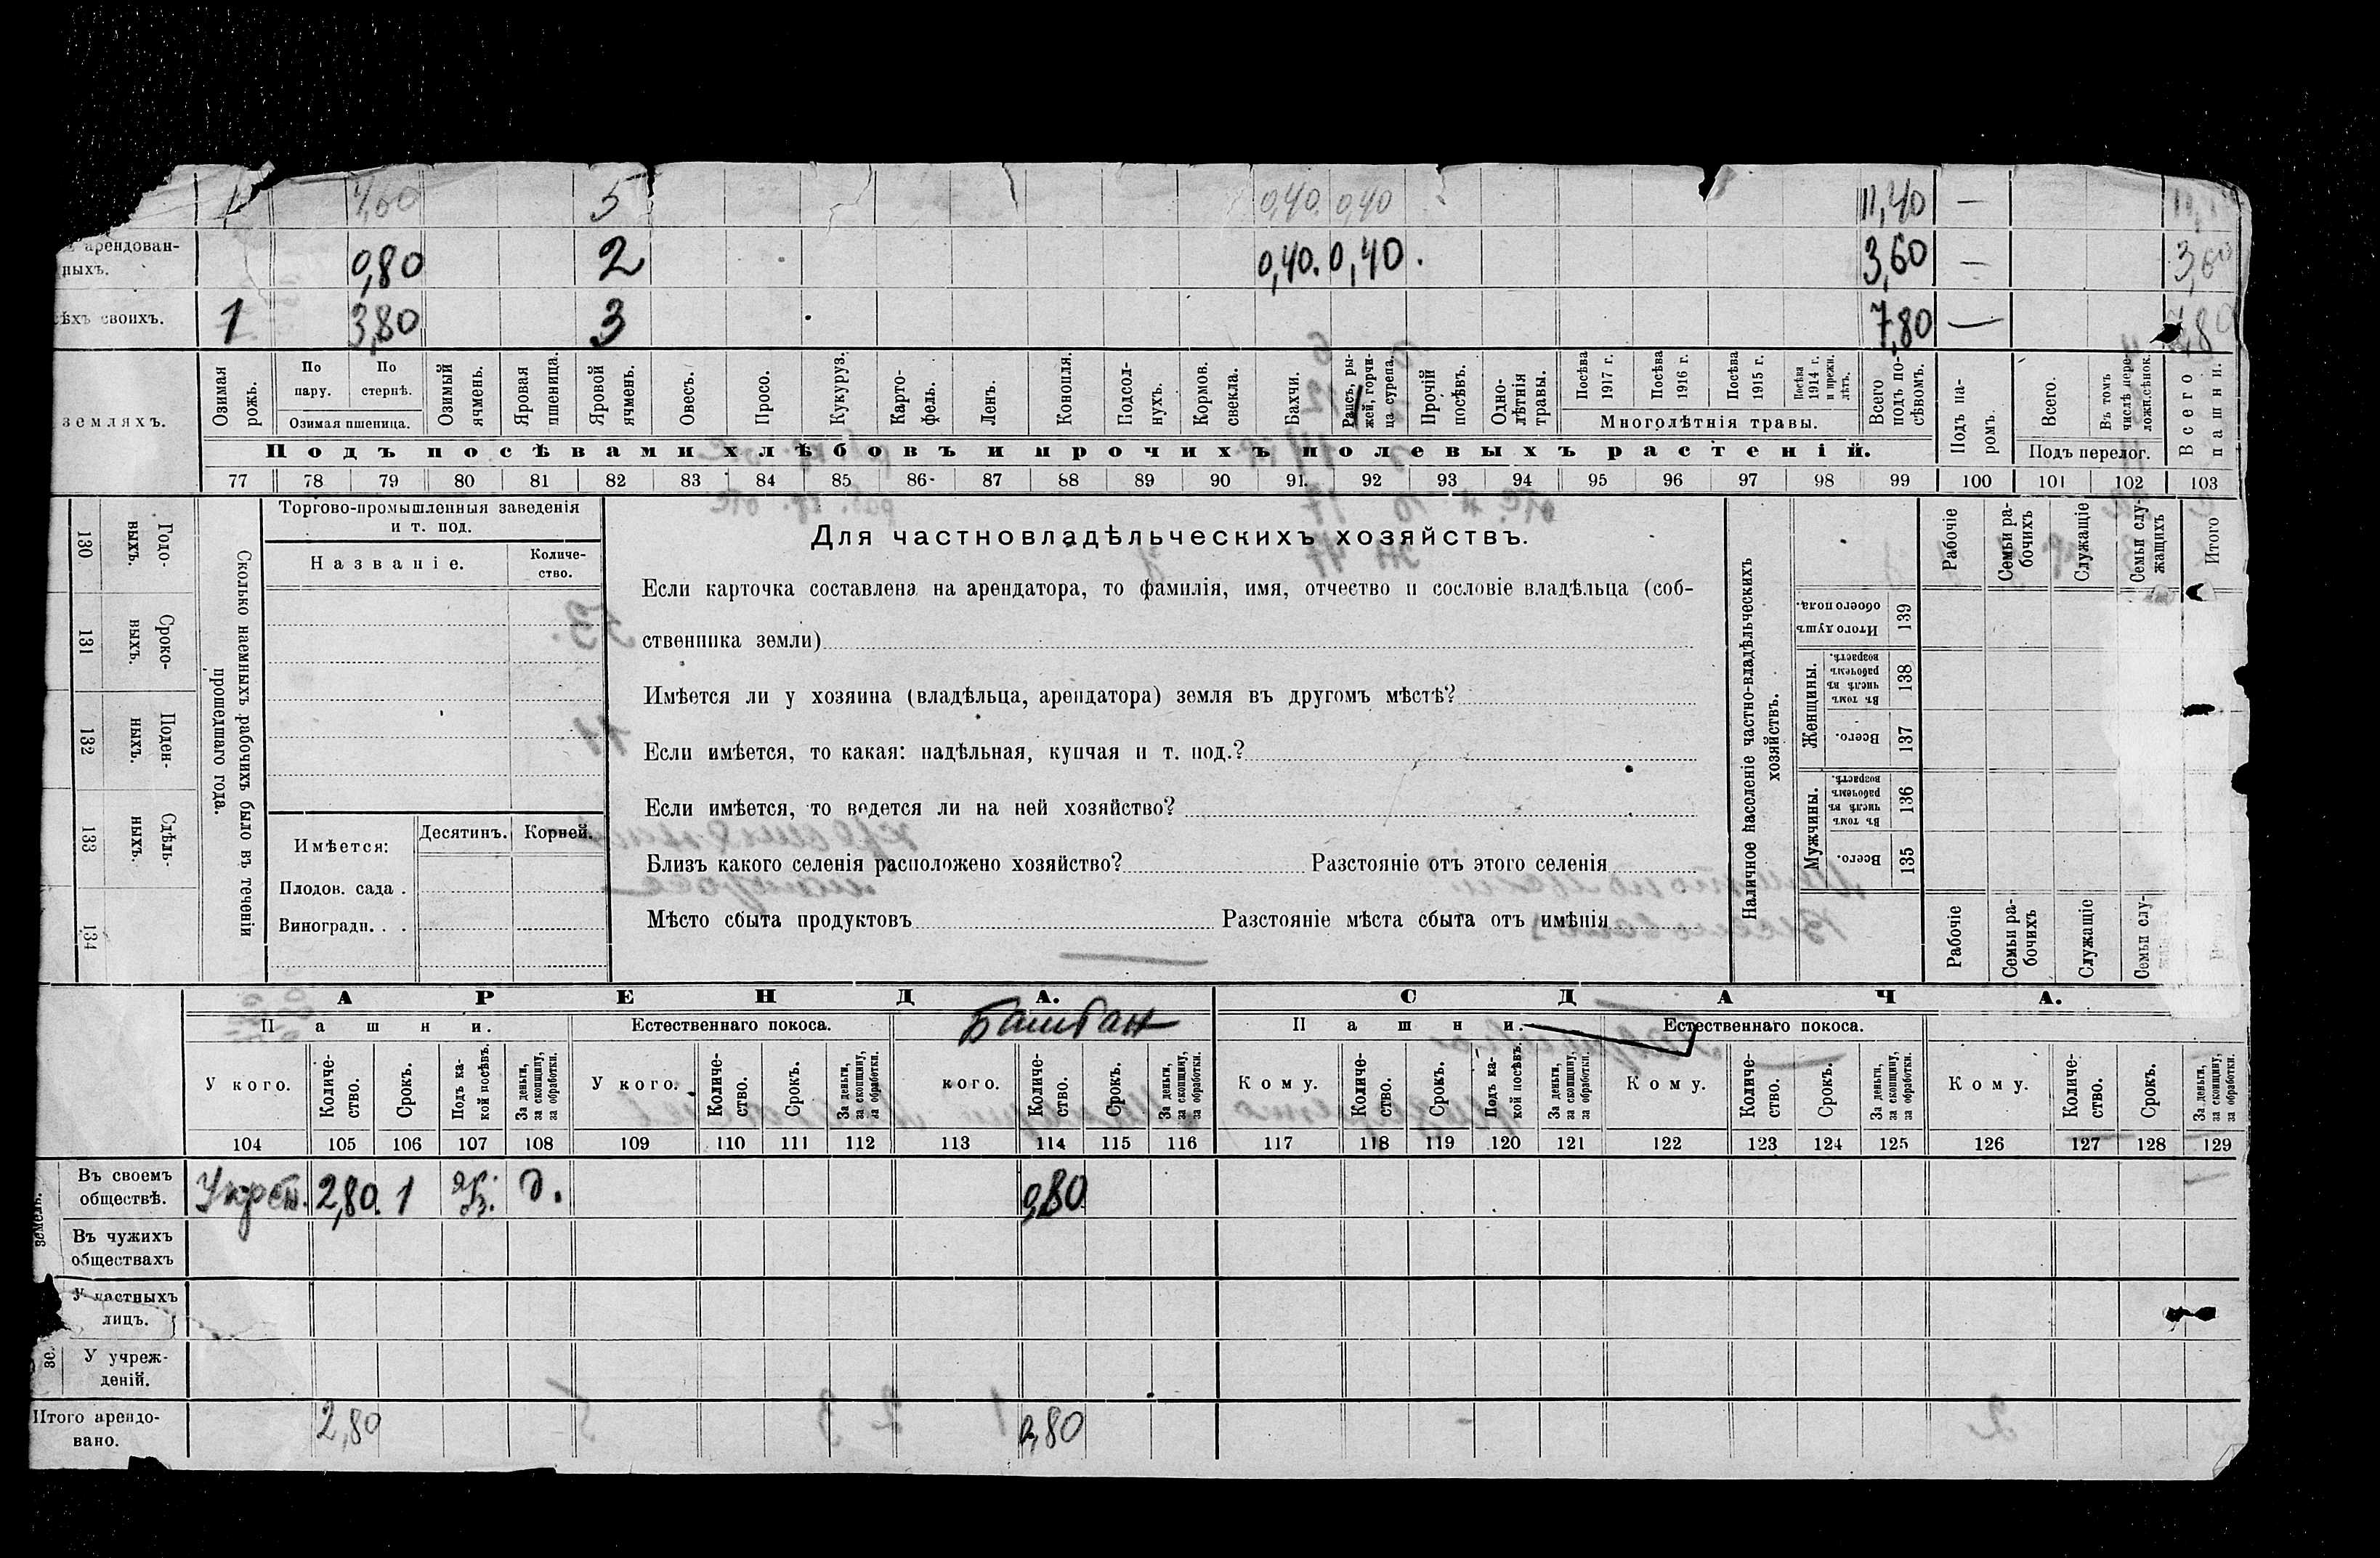 1 4,60 5 0,40. 0,40 11,40 —
арендован-
ныхъ. 0,80 2 0,40. 0,40. 3,60 — 3,60
ѣхъ своихъ. 1 3,80 3 7,80 — 7,80
земляхъ.
Озимая рожь.
По пару.
По стернѣ.
Озимая пшеница.
Озимый ячмень.
Яровая пшеница.
Яровой ячмень.
Овесъ.
Просо.
Кукуруз.
Карто-
фель.
Ленъ.
Конопля.
Подсол-
нухъ.
Кормов. свекла.
Бахчи.
Рапсъ, ры-
жей, горчи-
ца сурепа.
Прочій посѣвъ.
Одно-
лѣтнія травы.
Посѣва 1917 г.
Посѣва 1916 г.
Посѣва 1915 г.
Посѣва 1914 г. и прежн. лѣтъ.
Многолѣтнія травы.
Всего подъ по-
сѣвомъ.
Подъ па-
ромъ.
Всего.
Въ томъ числѣ пере-
ложн.сѣнок.
Подъ перелог.
Всего пашни.
Подъ посѣвами хлѣбовъ и прочихъ полевыхъ растеній.
77 78 79 80 81 82 83 84 85 86 87 88 89 90 91. 92 93 94 95 96 97 98 99 100 101 102 103
130 Годо-
выхъ.
131 Сроко-
выхъ.
132 Поден-
ныхъ.
133 Сдѣль-
ныхъ.
134
Сколько наемныхъ рабочихъ было въ теченіи
прошедшаго года.
Торгово-промышленныя заведенія
и т. под.
Названіе.
Количе-
ство.
Имѣется:
Десятинъ.
Корней.
Плодов. сада .
Виноградн. . .
Для частновладѣльческихъ хозяйствъ.
Если карточка составлена на арендатора, то фамилія, имя, отчество и сословіе владѣльца (соб-
ственника земли)
Имѣется ли у хозяина (владѣльца, арендатора) земля въ другомъ мѣстѣ?
Если имѣется, то какая: надѣльная, купчая и т. под.?
Если имѣется, то ведется ли на ней хозяйство?
Близъ какого селенія расположено хозяйство? Разстояніе отъ этого селенія
Мѣсто сбыта продуктовъ Разстояніе мѣста сбыта отъ имѣнія
Наличное населеніе частно-владѣльческихъ
хозяйствъ.
Итого душъ обоего пола.
139
Женщины.
Въ томъ числѣ въ рабочемъ возрастѣ.
138
Всего.
137
Мужчины.
Въ томъ числѣ въ рабочемъ возрастѣ.
136
Всего.
135
Рабочіе
Семьи ра-
бочихъ
Служащіе
Семьи слу-
жащихъ
Итого
Рабочіе
Семьи ра-
бочихъ
Служащіе
Семьи слу-
АРЕНДА.
СДАЧА.
Пашни.
Естественнаго покоса.
Баштан
Пашни.
Естественнаго покоса.
У кого.
Количе-
ство.
Срокъ.
Подъ ка-
кой посѣвъ.
За деньги, за скопщину, за обработки.
У кого.
Количе-
ство.
Срокъ.
За деньги, за скопщину, за обработки.
кого.
Количе-
ство.
Срокъ.
За деньги, за скопщину, за обработки.
Кому.
Количе-
ство.
Срокъ.
Подъ ка-
кой посѣвъ.
За деньги, за скопщину, за обработки.
Кому.
Количе-
ство.
Срокъ.
За деньги, за скопщину, за обработки.
Кому.
Количе-
ство.
Срокъ.
За деньги, за скопщину, за обработки.
104 105 106 107 108 109 110 111 112 113 114 115 116 117 118 119 120 121 122 123 124 125 126 127 128 129
земель.
Въ своемъ
обществѣ. 2,80. 1 д. 0,80
Въ чужихъ
обществахъ
У частныхъ
лицъ.
У учреж-
деній.
Итого арендо-
вано. 2,80 0,80